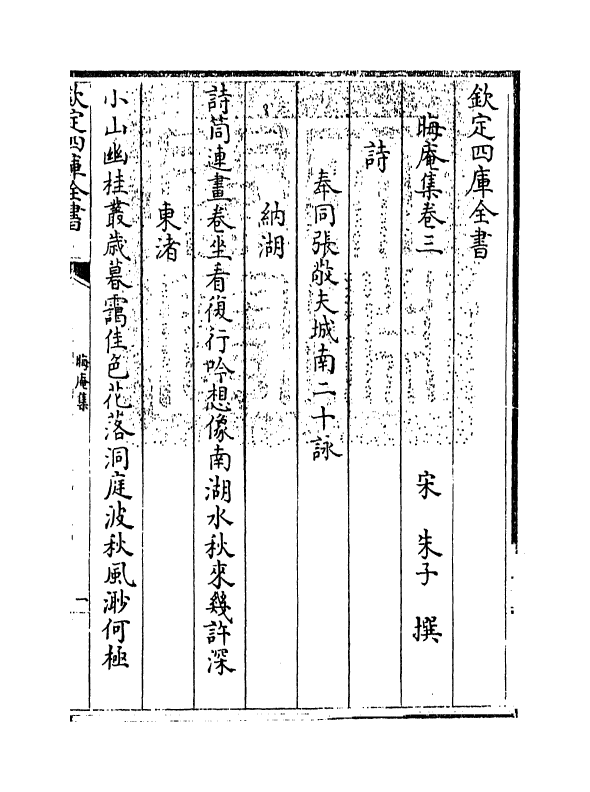 欽定四庫全書
晦庵集卷三 宋 朱子 撰
詩
奉同張敬夫城南二十詠
納湖
詩筒連畫卷坐看復行吟想像南湖水秋來幾許深
東渚
小山幽桂叢歲暮靄佳色花落洞庭波秋風渺何極
欽定四庫全書
晦庵集
一